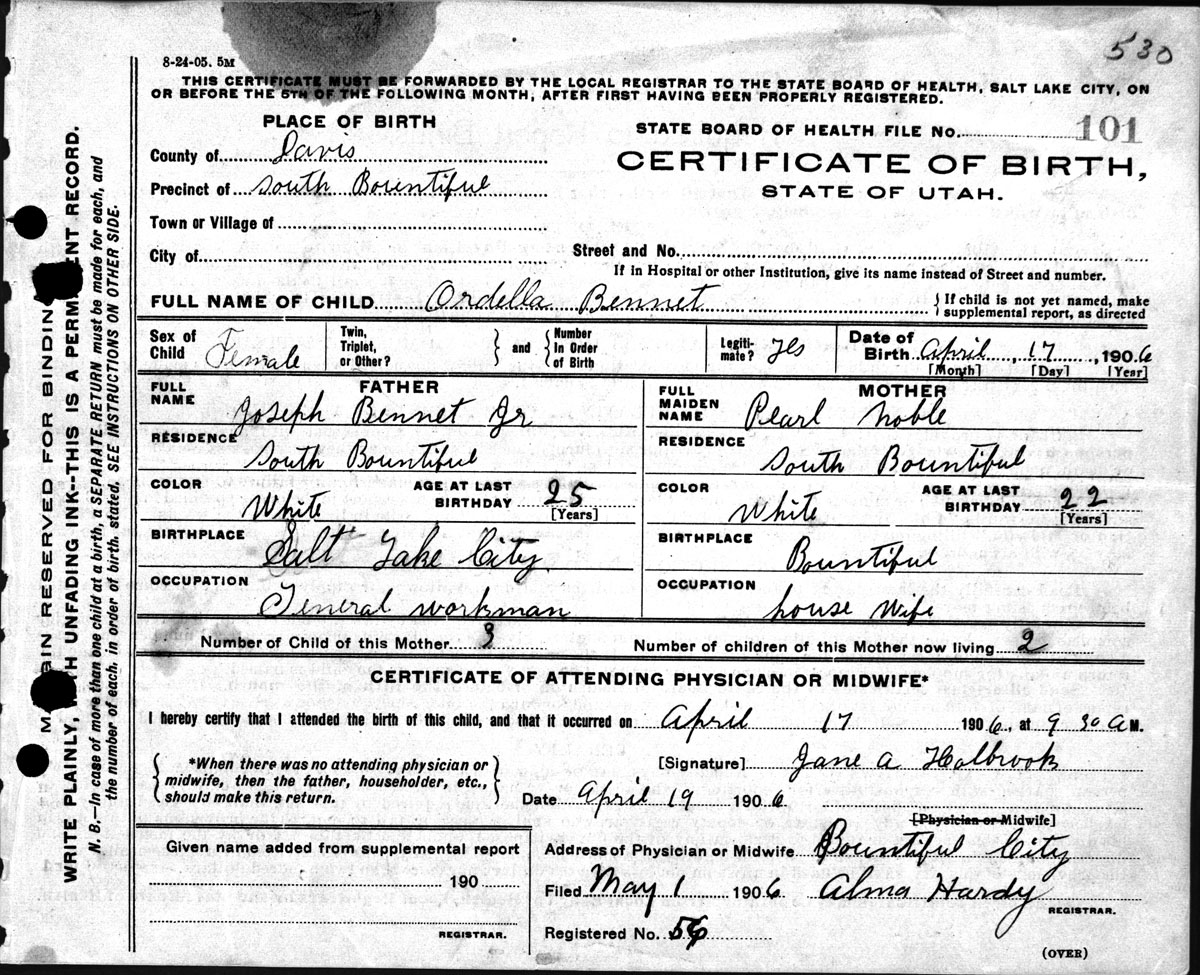 530
8-24-05. 5M
THIS CERTIFICATE MUST BE FORWARDED BY THE LOCAL REGISTRAR TO THE STATE BOARD OF HEALTH, SALT LAKE CITY, ON
OR BEFORE THE 5TH OF THE FOLLOWING MONTH, AFTER FIRST HAVING BEEN PROPERLY REGISTERED.
PLACE OF BIRTH
STATE BOARD OF HEALTH FILE No. 101
County of Davis
CERTIFICATE OF BIRTH,
Precinct of South Bountiful
STATE OF UTAH.
Town or Village of
City of
Street and No.
If in Hospital or other Institution, give its name instead of Street and number.
FULL NAME OF CHILD Ordella Bennet
{ If child is not yet named, make
supplemental report, as directed
Sex of Child Female
Twin, Triplet, or Other?
} and {
Number In Order of Birth
Legiti-mate? Yes
Date of Birth April, 17, 1906
[Month] [Day] [Year]
FATHER
FULL NAME Joseph Bennet Jr
RESIDENCE South Bountiful
COLOR White
AGE AT LAST BIRTHDAY 25 [Years]
BIRTHPLACE Salt Lake City
OCCUPATION General workman
MOTHER
FULL MAIDEN NAME Pearl Noble
RESIDENCE South Bountiful
COLOR White
AGE AT LAST BIRTHDAY 22 [Years]
BIRTHPLACE Bountiful
OCCUPATION house Wife
Number of Child of this Mother 3 Number of children of this Mother now living 2
CERTIFICATE OF ATTENDING PHYSICIAN OR MIDWIFE*
I hereby certify that I attended the birth of this child, and that it occurred on April 17 1906, at 9 30 A M.
{ *When there was no attending physician or
midwife, then the father, householder, etc.,
should make this return. }
[Signature] Jane A Holbrook
Date April 19 1906
[Physician or Midwife]
Given name added from supplemental report
190
REGISTRAR.
Address of Physician or Midwife Bountiful City
Filed May 1 1906 Alma Hardy
REGISTRAR.
Registered No. 56
(OVER)
MARGIN RESERVED FOR BINDING
WRITE PLAINLY, WITH UNFADING INK--THIS IS A PERMANENT RECORD.
N. B.—In case of more than one child at a birth, a SEPARATE RETURN must be made for each, and
the number of each, in order of birth, stated, SEE INSTRUCTIONS ON OTHER SIDE.